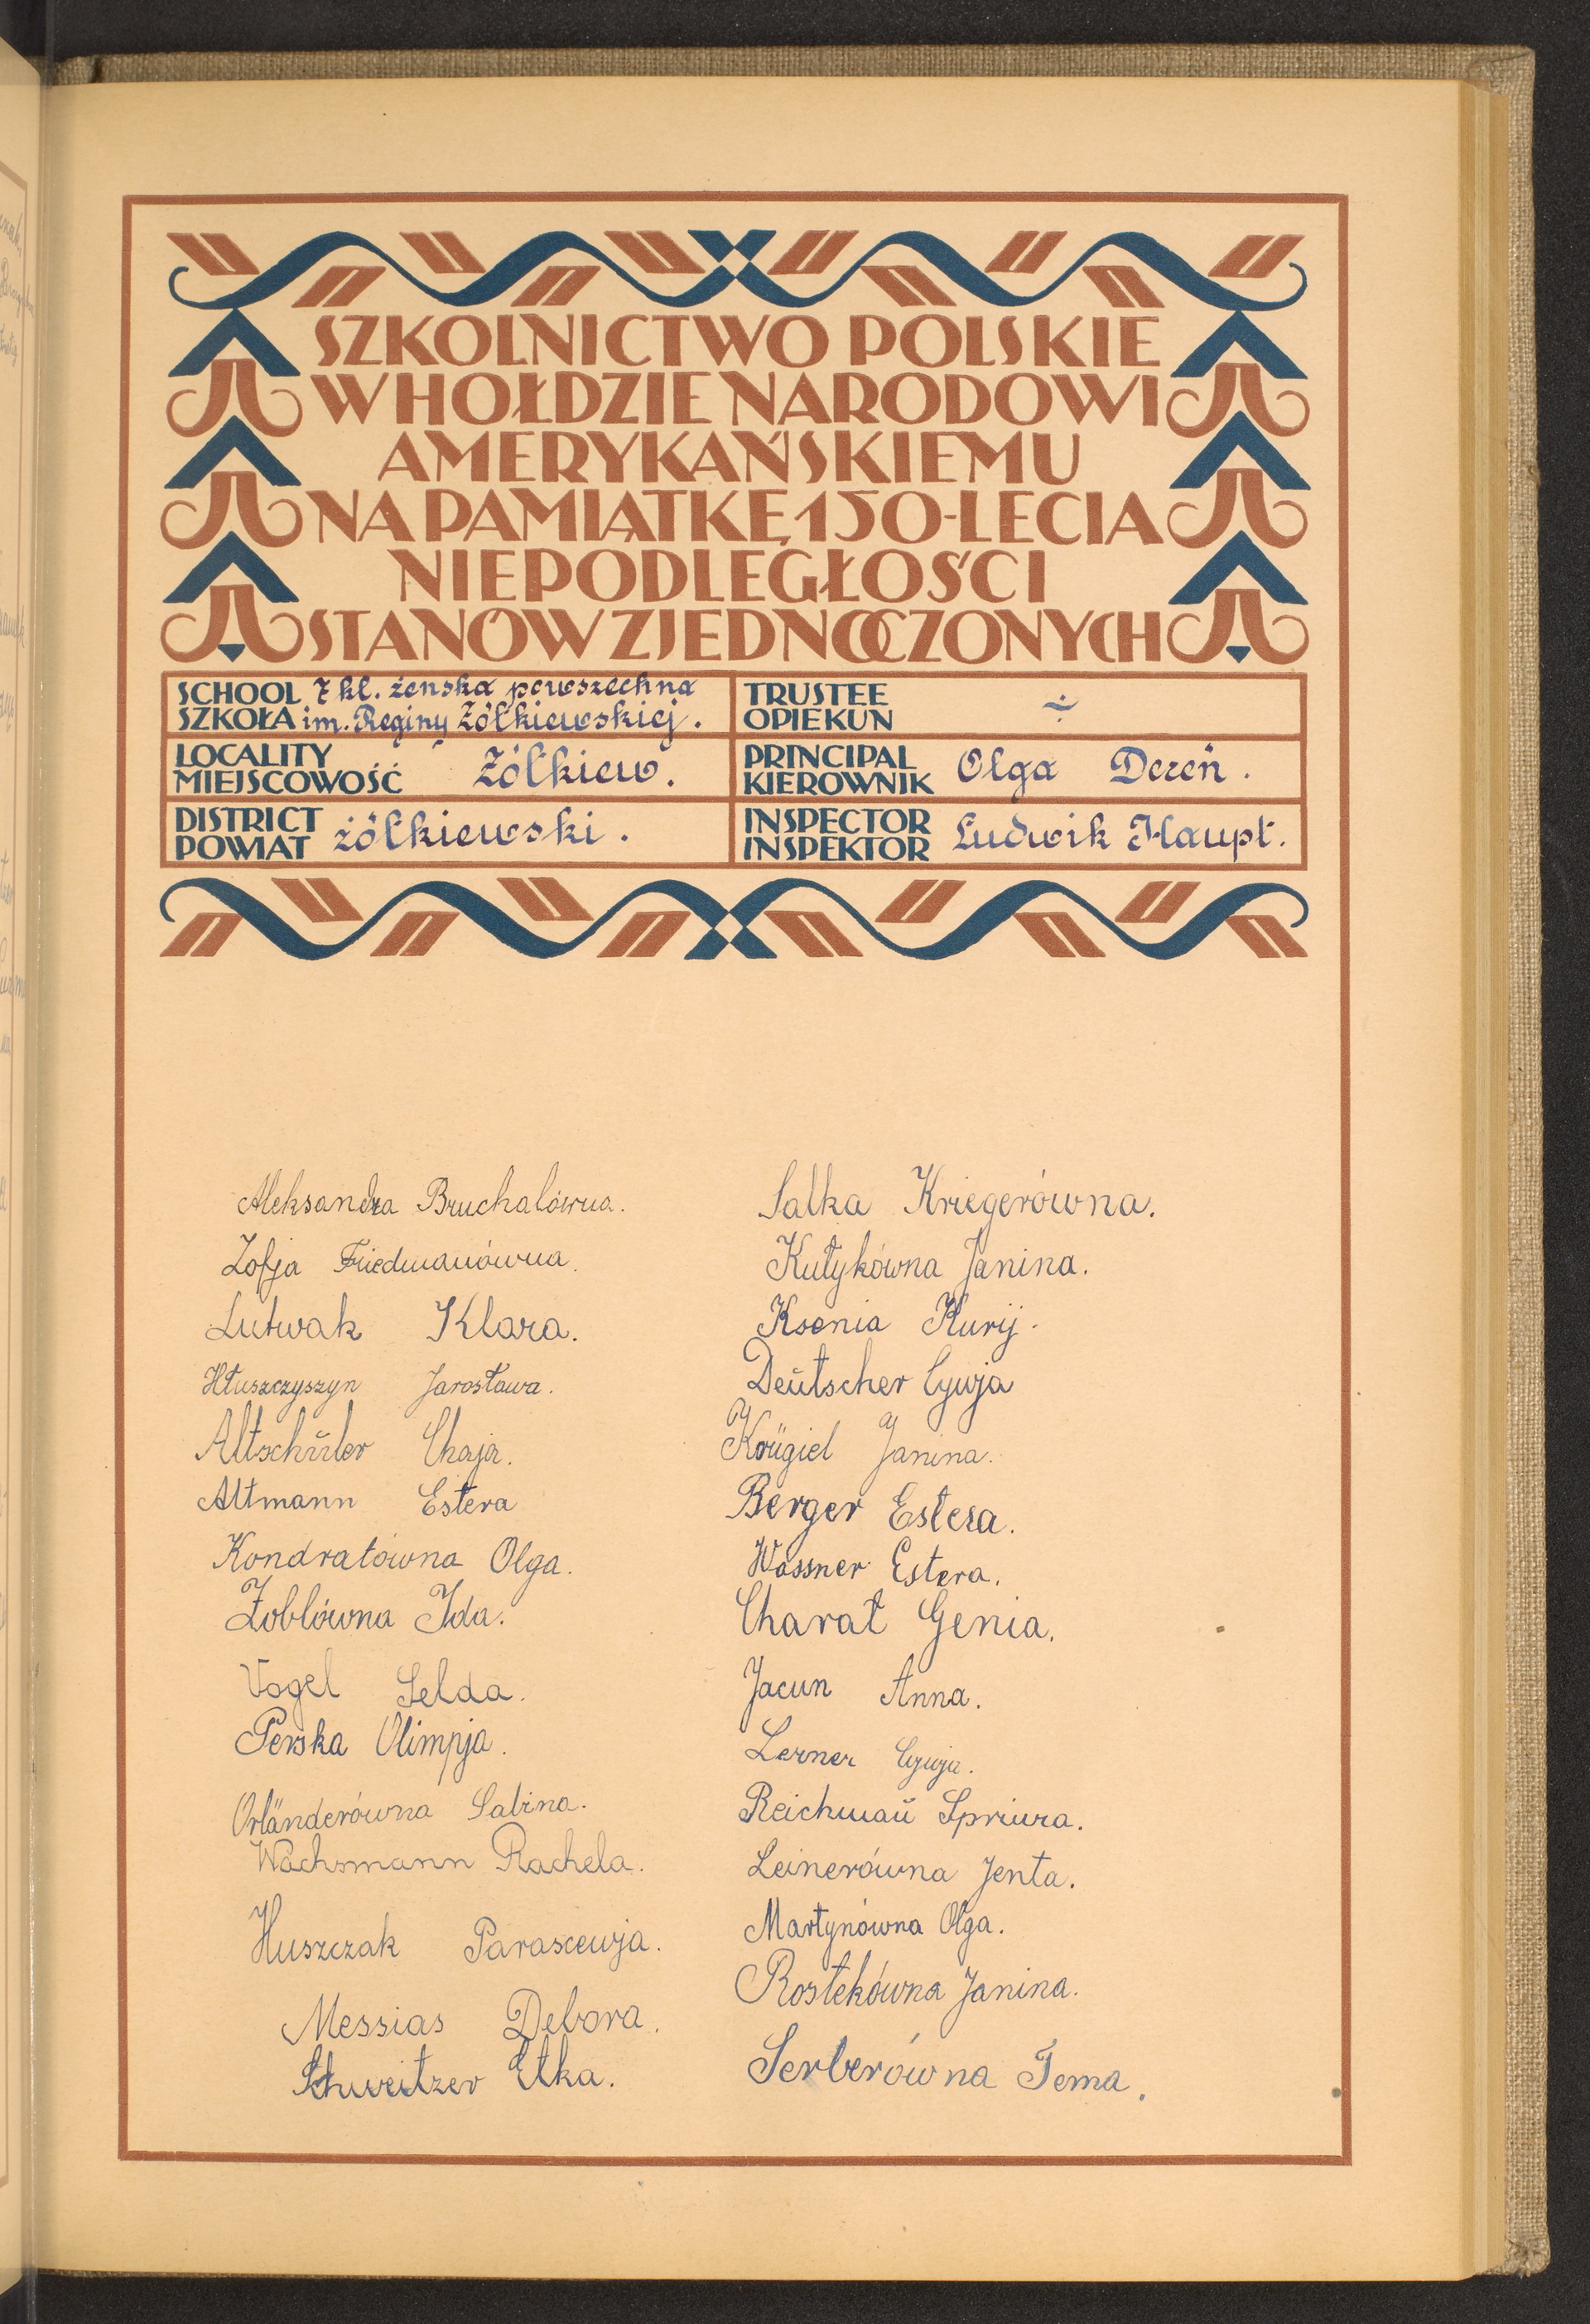 SZKOLNICTWO POLSKIE
W HOŁDZIE NARODOWI
AMERYKAŃSKIEMU
NA PAMIĄTKĘ 150-LECIA
NIEPODLEGŁOŚCI
STANÓW ZJEDNOCZONYCH
SCHOOL 7 kl. żenska powszechna
SZKOŁA im. Reginy Żółkiewskiej.
TRUSTEE
OPIEKUN ÷
LOCALITY
MIEJSCOWOŚĆ Żółkiew.
PRINCIPAL
KIEROWNIK Olga Dereń.
DISTRICT
POWIAT żółkiewski.
INSPECTOR
INSPEKTOR Ludwik Haupt.
Aleksandra Bruchalówna.
Zofja Friedmanówna.
Lutwak Klara.
Hłuszczyszyn Jarosława.
Altschüler Chaja.
Altmann Estera
Kondratówna Olga.
Zoblówna Ida.
Vogel Selda.
Perska Olimpja.
Orländerówna Sabina.
Wachsmann Rachela.
Huszczak Parascewja.
Messias Debora.
Schweitzer Etka.
Salka Kriegerówna.
Kutykówna Janina.
Ksenia Kurij.
Deutscher Cywja
Krügiel Janina.
Berger Estera.
Wassner Estera.
Charat Genia.
Jacun Anna.
Lerner Cywja.
Reichmaŭ
Leinerówna Jenta.
Martynówna Olga.
Rostekówna Janina.
Serberówna Tema.